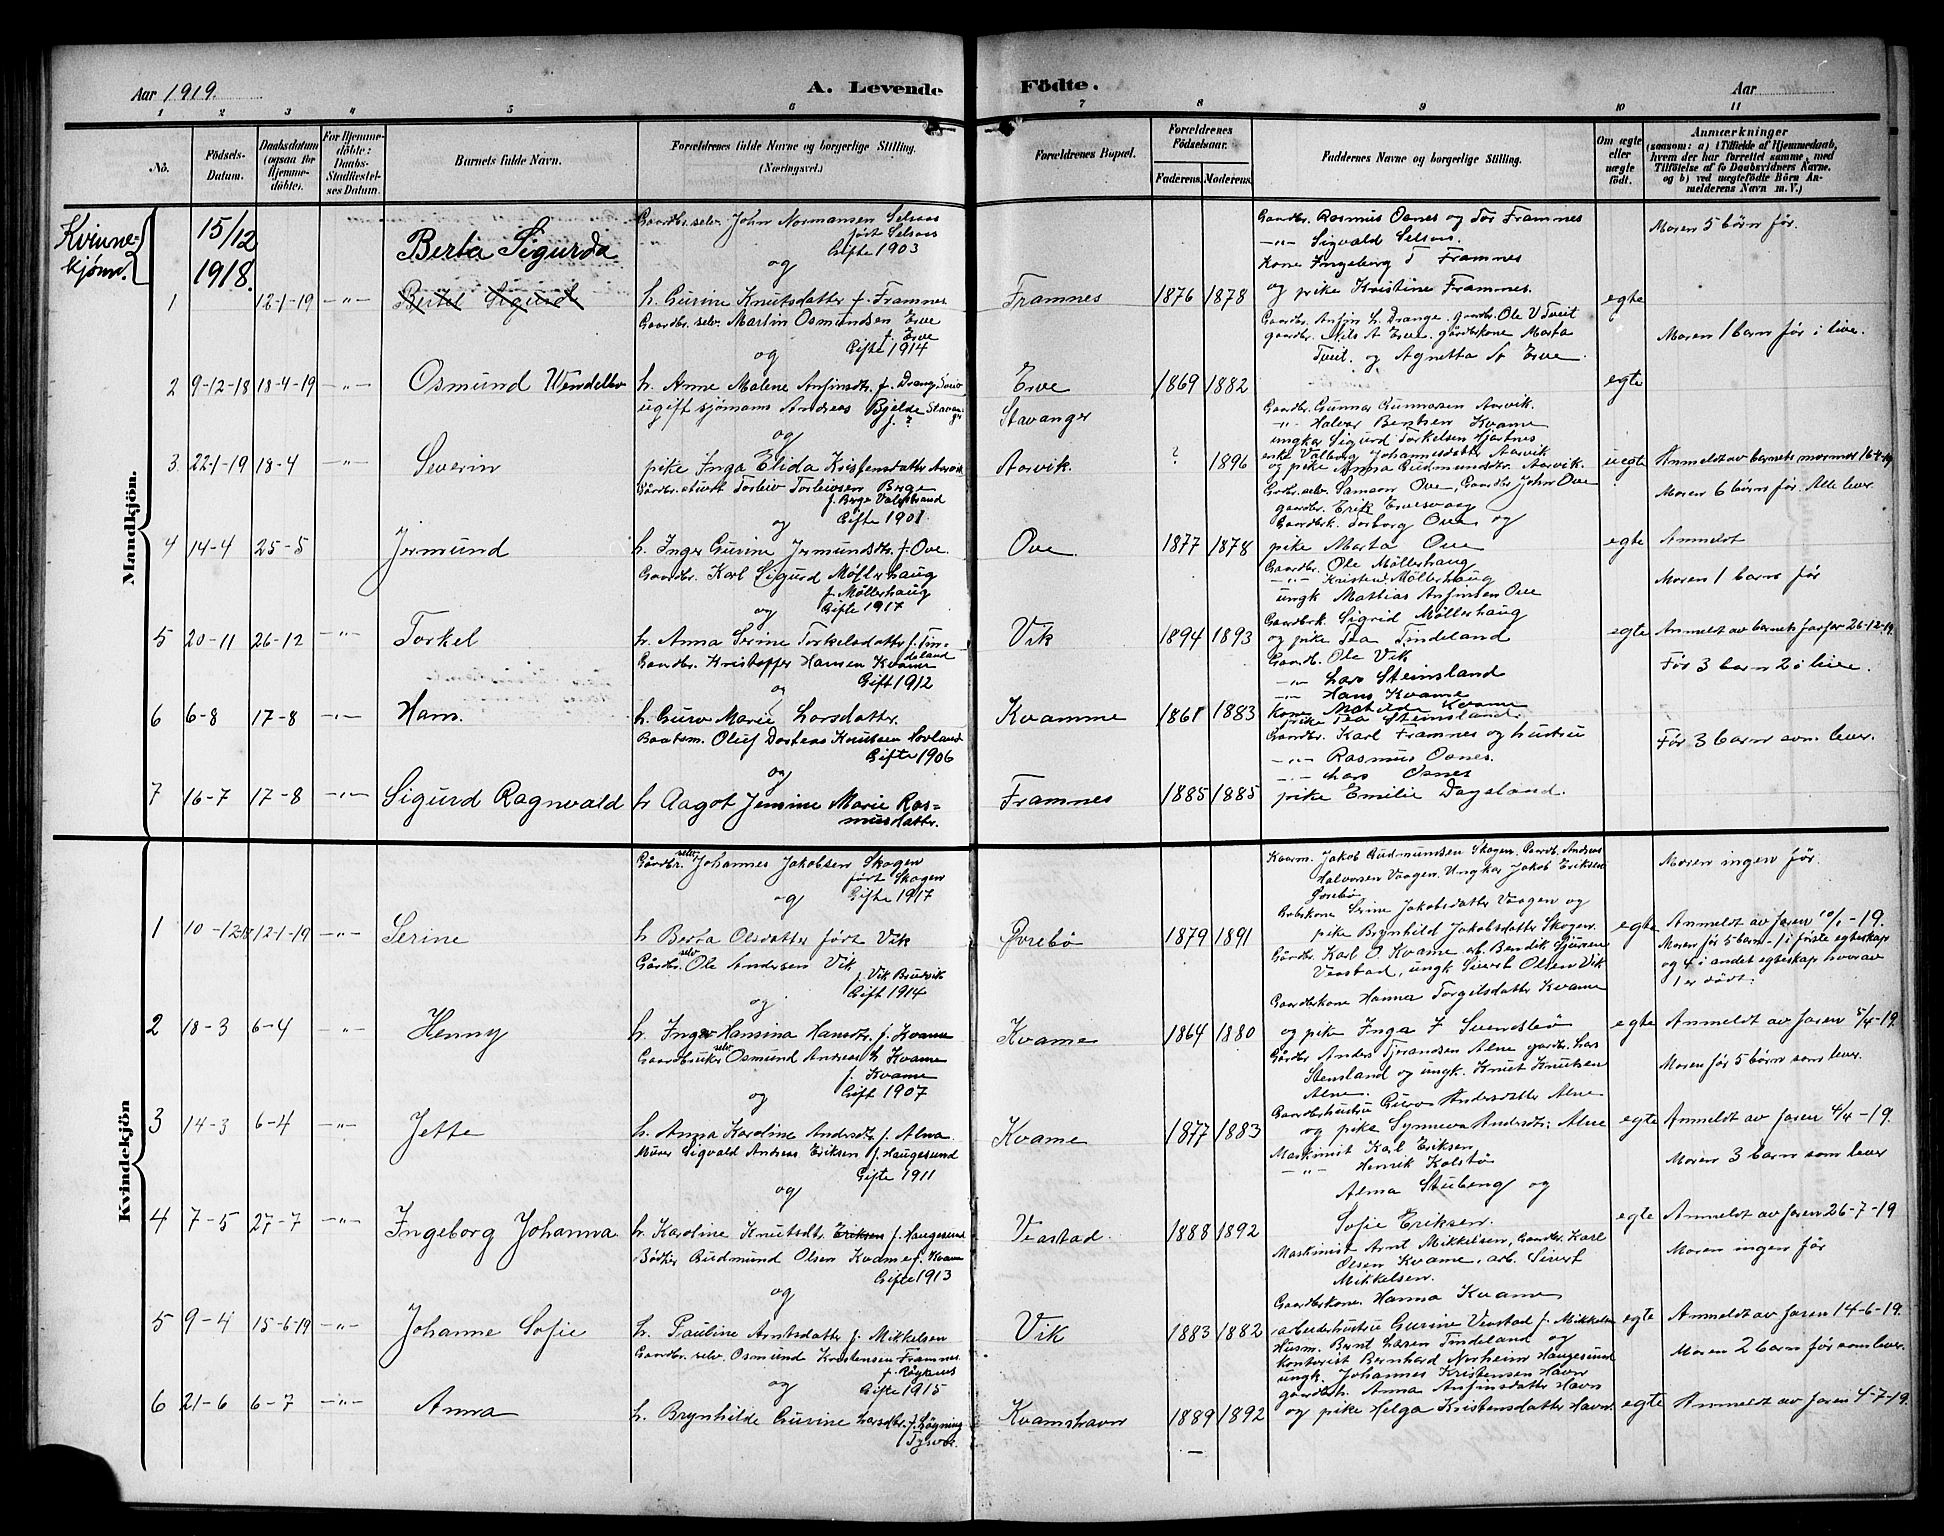 Aar 1919.
A. Levende Födte.
Aar
1 2 3 4 5 6 7 8 9 10 11
No.
Födsels-Datum.
Daabsdatum (ogsaa for Hjemmedöbte).
For Hjemmedöbte: Daabs-Stadfæstelses Datum.
Barnets fulde Navn.
Forældrenes fulde Navne og borgerlige Stilling.
(Næringsvei.)
Forældrenes Bopæl.
Forældrenes Födselsaar.
Faderens. Moderens.
Faddernes Navne og borgerlige Stilling.
Om ægte eller uægte födt.
Anmærkninger
(saasom: a) i Tilfælde af Hjemmedaab, hvem der har forrettet samme, med Tilföielse af to Daabsvidners Navne. og b) ved uægtefödte Börn Anmelderens Navn m. V.)
Mandkjön.
Kvinne-
kjønn.
15/12
1918.
Berta Sigurda
Gaardbr. selv. John Normansen Selsaas
født Selsaas
Gifte 1903
og
Gaardbr. Rasmus Oanes og Tor Framnes
-"- Sigvald Selsaas.
Kone Ingeborg T Framnes
Moren 5 børn før.
1 12-1-19 -"- Bertel Sigurd
h. Gurine Knutsdatter f. Framnes
Framnes 1876 1878
og pike Kristine Framnes.
egte
Gaardbr. selv. Martin Osmundsen Erve
f. Erve
Gifte 1914
og
Gaardbr. Anfin L. Drange. gaardbr. Ole V Tveit
gaardbr. Nils A Erve. gårdbkone Marta
Tveit. og Agnetta A Erve.
Moren 1 barn før i live.
2 9-12-18 18-4-19 -"- Osmund Wendelbo
h. Anne Malene Anfinsdtr. f. Drange
Erve 1869 1882 egte
ugift sjømann Andreas Bjelde
f. ?
og
Stavanger
Gaardbr. Gunnar Gunnarsen Aarvik.
-"- Halvor Bentsen Kvame
ungkar Sigurd Torkelsen Hjartnes
enke Valborg Johannesdatter Aarvik
3 22-1-19 18-4 -"- Severin
pike Inga Elida Kristensdatter Aarvik
Aarvik. ? 1896
og pike Anna Gudmundsdtr. Aarvik.
uegte Anmeldt av barnets mormor 16-4-19
Torleiv Torleivsen Berge
f. Berge Valestrand
Gifte 1901.
og
Grdbr. selv. Samson Ove, Gaardbr. John Ove
gaardbr. Erik Ervesvaag
Gaardbrk. Torborg Ove og
Moren 6 børn før. Alle lever.
4 14-4 25-5 Jermund
h. Inger Gurine Jermundsdtr. f. Ove.
Ove. 1877 1878
pike Marta Ove
egte Anmeldt
Gaardbr. Karl Sigurd Møllerhaug
f. Møllerhaug
Gifte 1917
og
Gaardbr. Ole Møllerhaug
-"- Kristen Møllerhaug
ungk Mathias Anfinsen Ove
Gaardbrk. Sigrid Møllerhaug
Moren 1 barn før
5 20-11 26-12 -"- Torkel
h. Anna Serine Torkelsdatter f. Tin-
deland
Vik 1894 1893
og pike Tea Tindeland
egte Anmeldt av barnets farfar 26-12-19.
Gaardbr. Kristoffer Hansen Kvame
Gift 1912
og
Gaardb. Ole Vik
-"- Lars Steinsland
-"- Hans Kvame
Før 3 barn 2 i live.
6 6-8 17-8 -"- Hans.
h. Guro Marie Larsdatter.
Kvamme 1861 1883
Kone Matilde Kvame
pike Tea Steinsland.
Baatsm. Oluf Dorteas Knutsen Hovland
Gifte 1906
og
Gaardbr. Karl Framnes og hustru
-"- Rasmus Oanes.
-"- Lars Oanes
Før 3 barn som lever.
7 16-7 17-8 -"- Sigurd Ragnvald
h Aagot Jensine Marie Ras-
musdatter.
Framnes 1885 1885
pike Emilie Dagsland.
Kvindekjön
Gårdbr. selv Johannes Jakobsen Skogen
født Skogen
Gifte 1917
og
Kaarm. Jakob Gudmundsen Skogen. Gaardb. Andreas
Halvorsen Vaagen. Ungkar Jakob Eriksen
Øvrebø
Serine Jakobsdatter Vaagen og
Moren ingen før.
1 10-12-18 12-1-19 -"- Serine
h Berta Olsdatter født Vik
Øvrebø 1879 1891
pike Brynhild Jakobsdatter Skogen.
egte Anmeldt av faren 10/1-19.
Gårdbr. selv Ole Andersen Vik
f. Vik Budvik
Gift 1914
og
Gårdbr. Karl O. Kvame arb. Bendik Sjursen
Veastad, ungk Sivert Olsen Vik
Gaardbrkone Hanna Torgilsdatter Kvame
Moren før 5 barn - 1 i første egteskap
og 4 i andet egteskap hvorav
1 er død.
2 18-3 6-4 -"- Henny
h. Inger Hansina Hansdtr. f. Kvame
Kvame 1864 1880
og pike Inga I Svendsbø
egte Anmeldt av faren 5/4-19.
Gaardbruker selv Osmund Andreas h Kvame
f. Kvame
Gift 1907
og
Gårdbr Anders Tjerandsen Alne gardbr. Lars
Stensland og ungk. Knut Knutsen
Alne.
Gaardbrhustru Guro Andersdatter Alne
Moren før 5 børn som lever.
3 14-3 6-4 -"- Jette
h. Anna Karoline Andersdtr f. Alna.
Kvame 1877 1883
og pike Synneva Andersdtr. Alne
egte Anmeldt av faren 4/4-19.
Murer Sigvald Andreas Eriksen f. Haugesund
Gifte 1911
og
Maskinist Karl Eriksen
-"- Henrik Kolstø
Alma Stuberg og
Moren 3 barn som lever
4 7-5 27-7 -"- Ingeborg Johanna
h. Karoline Knutsdtr. Eriksen f. Haugesund
Veastad. 1888 1892
Sofie Eriksen.
egte Anmeldt av faren 26-7-19
Bødker Gudmund Olsen Kvame f. Kvame
Gifte 1913
og
Maskinist Arnt Mikkelsen, Gaardbr. Karl
Olsen Kvame, arb. Sivert
Mikkelsen.
Gaardbrkone. Hanna Kvame
Moren ingen før
5 9-4 15-6-19 -"- Johanne Sofie
h. Pauline Arntsdatter f. Mikkelsen
Vik 1883 1882
arbeiderhustru Gurine Veastad f. Mikkelsen
egte Anmeldt av faren 14-6-19.
Gaardbr. selv. Osmund Kristensen Framnes
f. Røyknes
Gifte 1915
og
Husm. Bernt Larsen Tindeland og
kontorist Bernhard Norheim Haugesund
ungk. Johannes Kristensen Havn
gaardbrh. Anna Anfinsdatter Havn
Moren 2 barn før som lever.
6 21-6 6-7 -"- Anna
h. Brynhilde Gurine Larsdtr. f. Løgning
Tysvær.
Kvamshavn 1889 1892
og pike Helga Kristensdatter Havn
egte Anmeldt av faren 4-7-19.